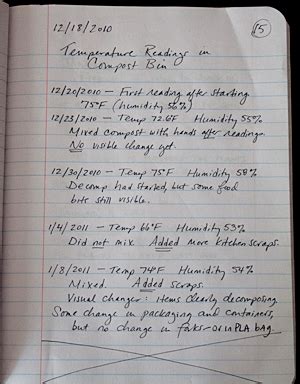 15
12/18/2010
Temperature Readings in
Compost Bin
12/20/2010 – First reading after starting
75°F (humidity 56%)
12/23/2010 – Temp 72.6°F Humidity 55%
Mixed compost with hands after reading.
No visible change yet.
12/30/2010 – Temp 75°F Humidity 58%
Decomp had started, but some food
bits still visible.
1/4/2011 – Temp 66°F Humidity 53%
Did not mix. Added more kitchen scraps.
1/8/2011 – Temp 74°F Humidity 54%
Mixed. Added scraps.
Visual changes: Items clearly decomposing.
Some change in packaging and containers,
but no change in forks – or in PLA bag.